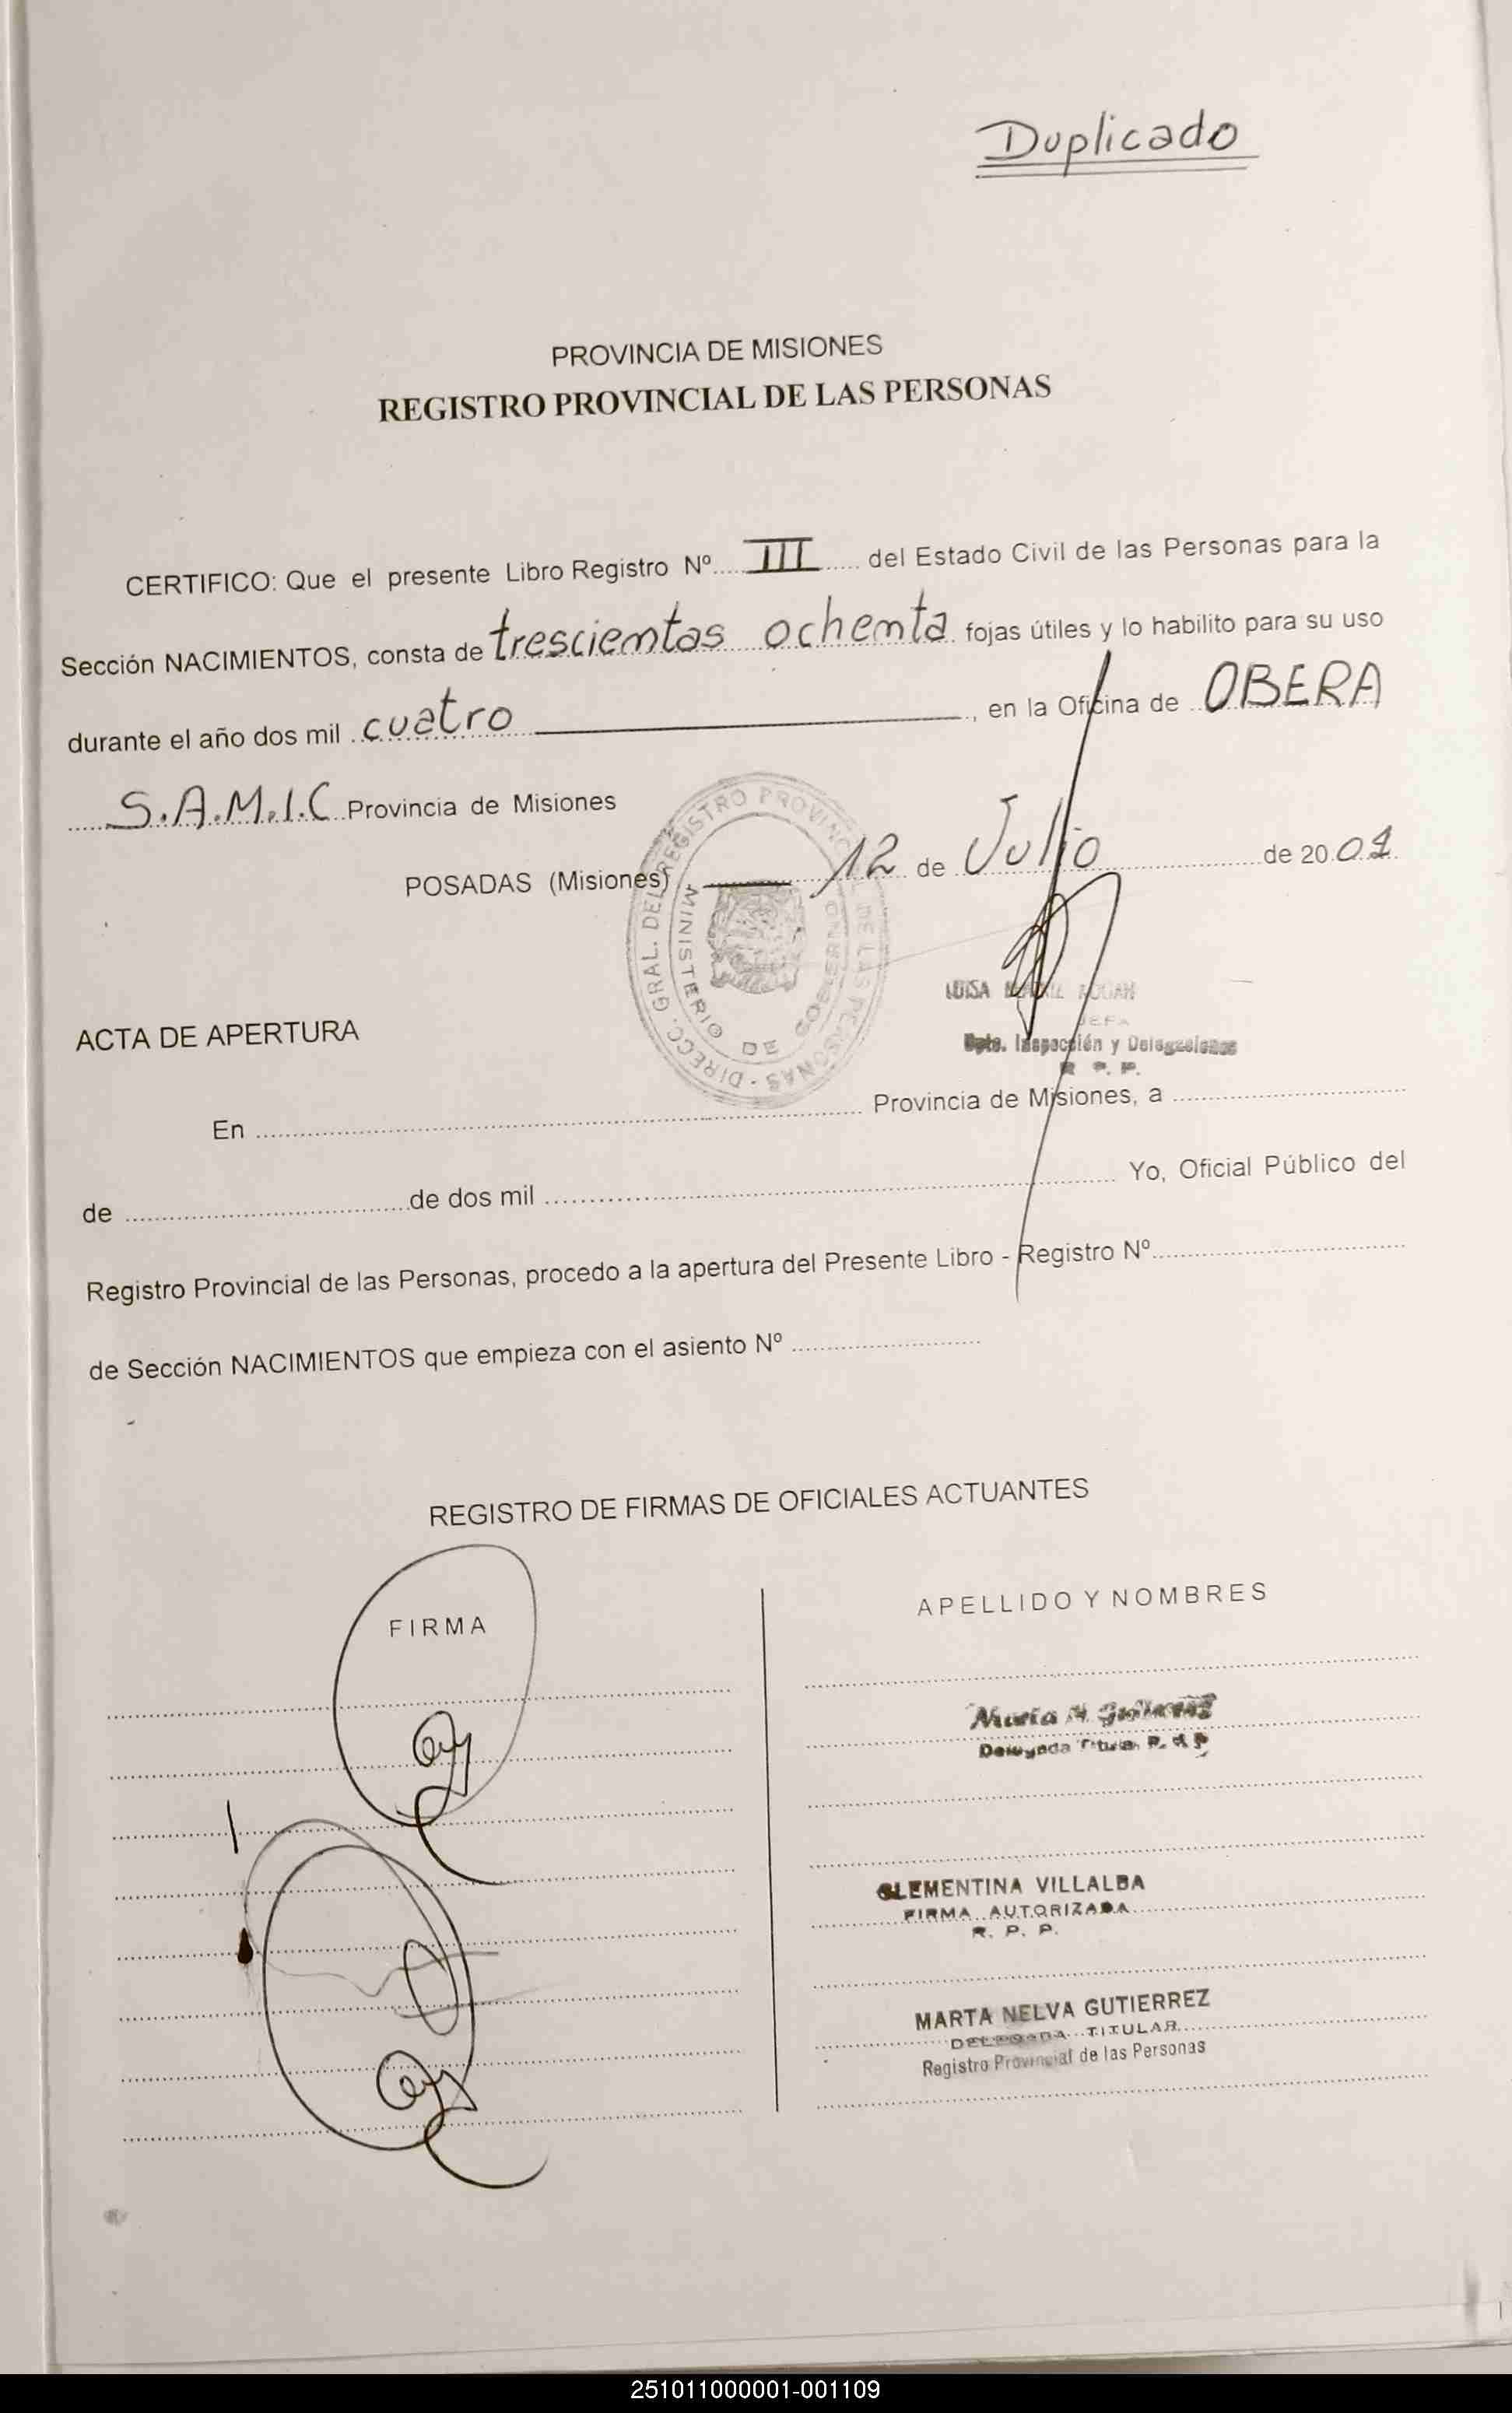 Duplicado
PROVINCIA DE MISIONES
REGISTRO PROVINCIAL DE LAS PERSONAS
CERTIFICO: Que el presente Libro Registro Nº.... III ..... del Estado Civil de las Personas para la
Sección NACIMIENTOS, consta de trescientas ochenta fojas útiles y lo habilito para su uso
durante el año dos mil cuatro ........, en la Oficina de OBERA
S.A.M.I.C Provincia de Misiones
POSADAS (Misiones) 12 de Julio de 20.04.
DIRECC. GRAL. DEL REGISTRO PROVINCIAL DE LAS PERSONAS
MINISTERIO DE GOBIERNO
LUISA
JEFA
Dpto. Inspección y Delegaciones
R. P. P.
ACTA DE APERTURA
En ........ Provincia de Misiones, a ........
de ........ de dos mil ........ Yo, Oficial Público del
Registro Provincial de las Personas, procedo a la apertura del Presente Libro - Registro Nº........
de Sección NACIMIENTOS que empieza con el asiento Nº ........
REGISTRO DE FIRMAS DE OFICIALES ACTUANTES
FIRMA
APELLIDO Y NOMBRES
Delegada Titular R. d P
CLEMENTINA VILLALBA
FIRMA AUTORIZADA
R. P. P.
MARTA NELVA GUTIERREZ
DELEGADA TITULAR
Registro Provincial de las Personas
251011000001-001109